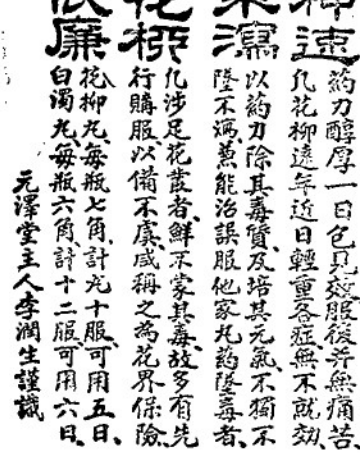 神速
藥力醇厚一日包見效服後并無痛苦、
凡花柳遠年近日輕重各症無不就效、
瀉
以藥力除其毒質及培其元氣不獨不
墜不瀉、兼能治誤服他家丸藥墜毒者、
花柳
凡涉足花叢者、鮮不蒙其毒、故多有先
行購服、以備不虞、咸稱之為花界保險、
廉
花柳丸、每瓶七角、計九十服、可用五日、
白濁丸、每瓶六角、計十二服、可用六日、
元澤堂主人李潤生謹識